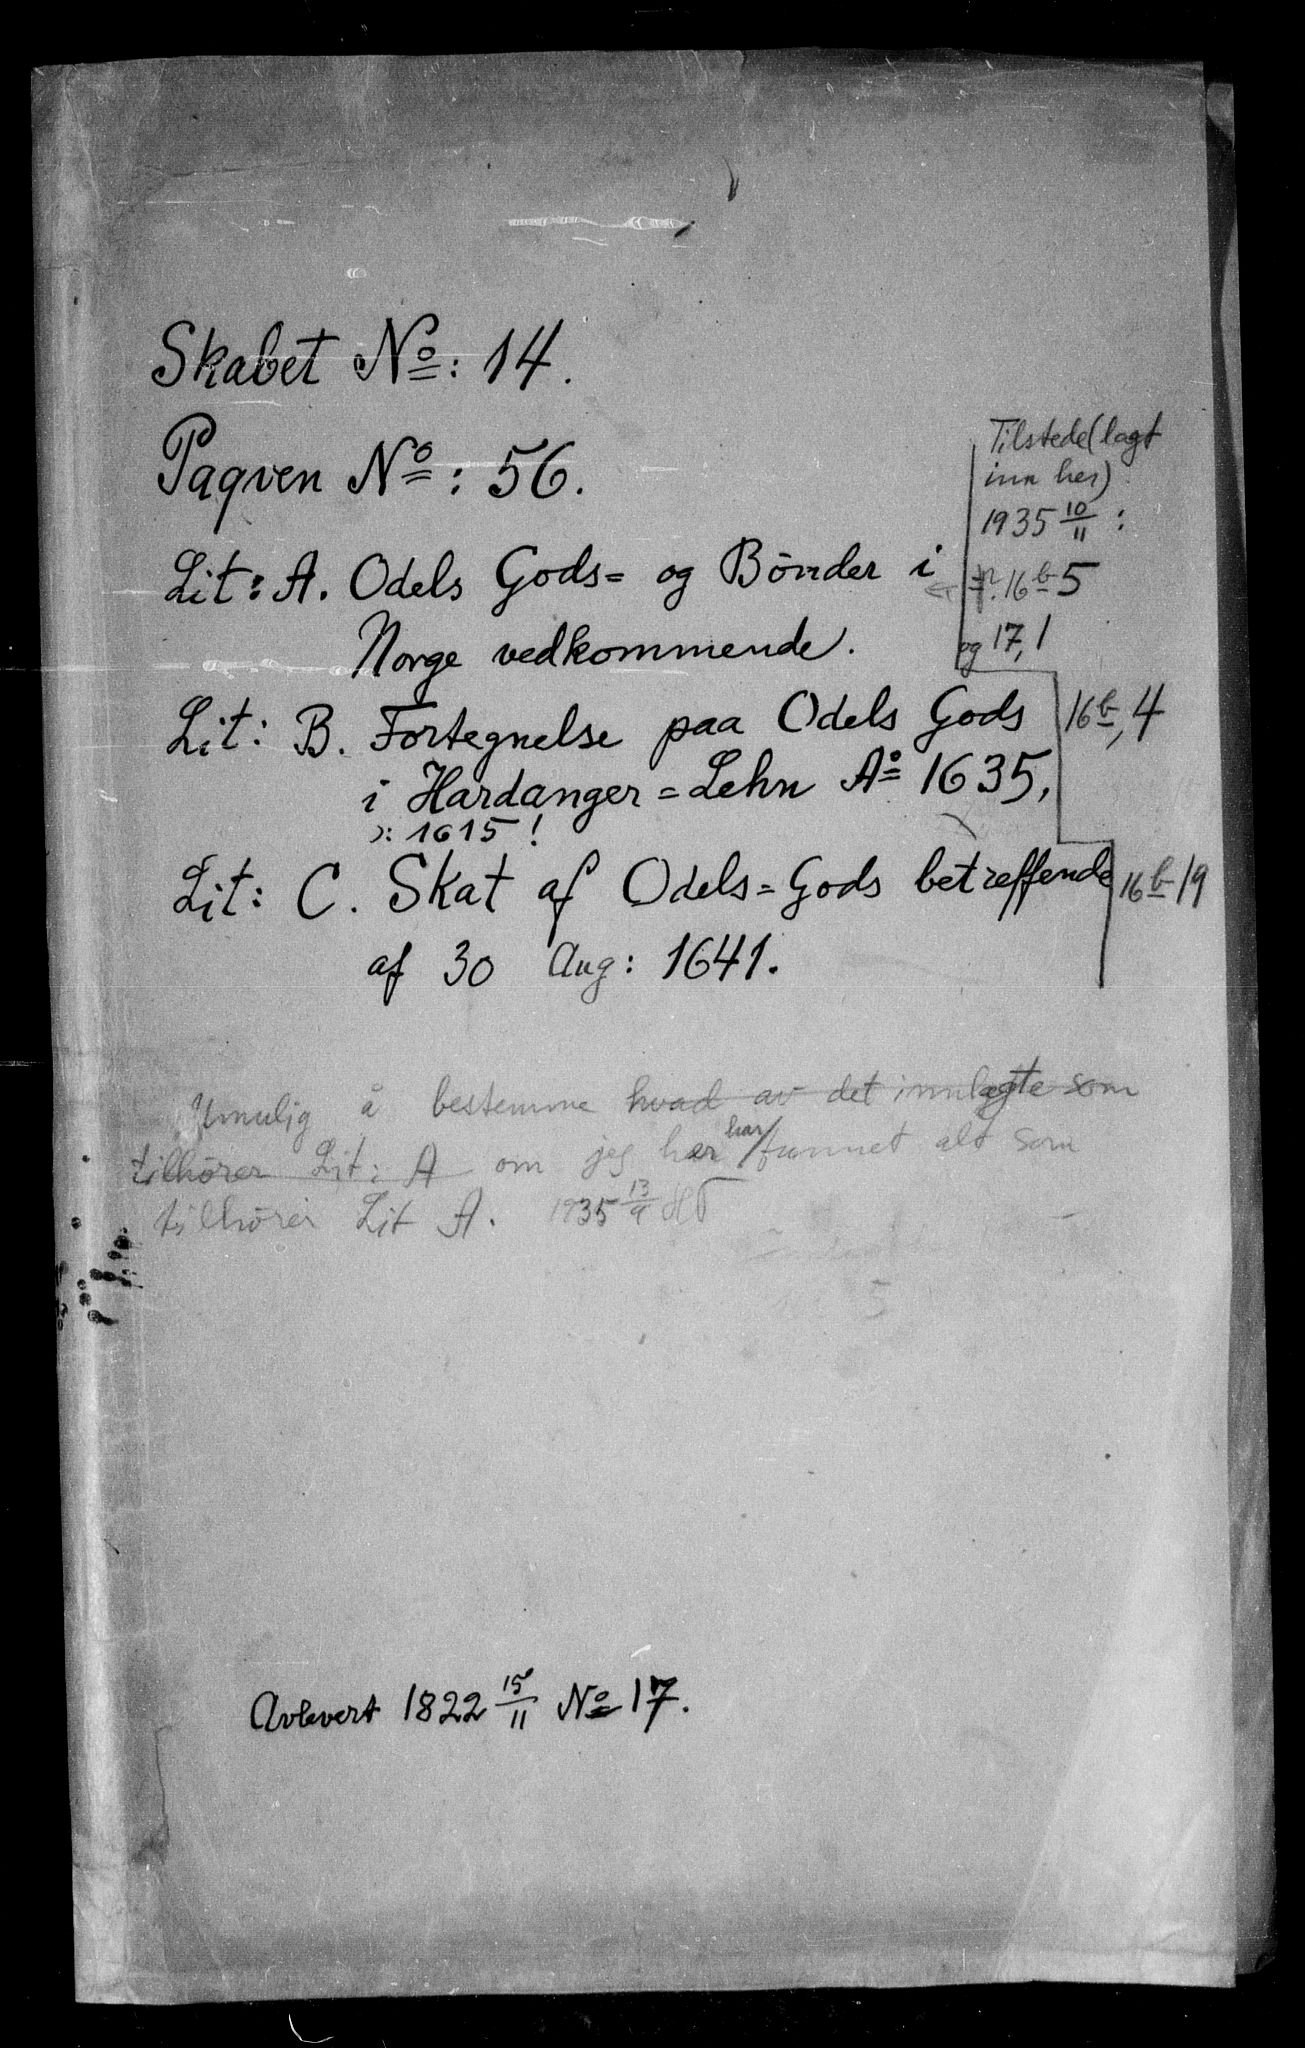 Skabet No: 14.
Paqven No: 56.
Tilstede (lagt
inn her)
1935 10/11 :
16b 5
og 17, 1
Lit: A. Odels Gods= og Bönder i
Norge vedkommende.
Lit: B. Fortegnelse paa Odels Gods
16b, 4
i Hardanger=Lehn Ao 1635,
ɔ: 1615!
Lit: C. Skat af Odels=Gods betreffende
16b 19
af 30 Aug: 1641.
Umulig å bestemme hvad av det innlagte som
tilhörer Lit: A om jeg her har funnet alt som
tilhörer Lit A. 1935 13/9 HT
Avlevert 1822 15/11 No 17.